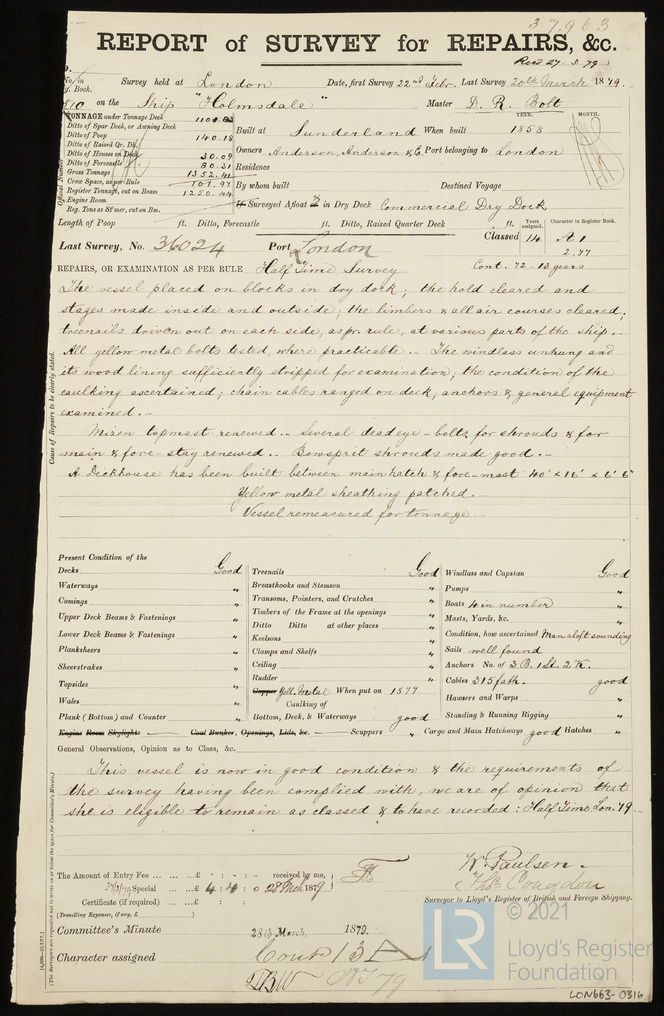 37963
REPORT of SURVEY for REPAIRS, &c.
Recd 27.3.79
No. in Survey held at London Date, first Survey 22nd Febr. Last Survey 20th March 1879.
g. Book.
510. on the Ship "Holmsdale" Master D. R. Bolt
TONNAGE under Tonnage Deck
Ditto of Spar Deck, or Awning Deck
Ditto of Poop 140.18
Ditto of Raised Qr. Dk.
Ditto of Houses on Deck 30.09
Ditto of Forecastle 80.31
Gross Tonnage 1352.41
Crew Space, as per Rule 101.97
Register Tonnage, cut on Beam 1250.44
Engine Room
Reg. Tons as St'mer, cut on Bm.
Official Number
YEAR. MONTH.
Built at Sunderland When built 1858
Owners Anderson, Anderson & Co. Port belonging to London
Residence
By whom built Destined Voyage
If Surveyed Afloat or in Dry Dock Commercial Dry Dock
Length of Poop ft. Ditto, Forecastle ft. Ditto, Raised Quarter Deck ft.
Years assigned. Character in Register Book.
Classed 14 A1
2.77
Last Survey, No. 36024 Port London
Cont. 72-13 years
REPAIRS, OR EXAMINATION AS PER RULE Half Time Survey
The vessel placed on blocks in dry dock; the hold cleared and
stages made inside and outside; the limbers & all air courses cleared;
treenails driven out on each side, as pr. rule, at various parts of the ship.-
All yellow metal bolts tested, where practicable.. The windlass unhung and
its wood lining sufficiently stripped for examination; the condition of the
caulking ascertained; chain cables ranged on deck; anchors & general equipment
examined.-
Mizen topmast renewed.. Several deadeye-bolts for shrouds & for
main & fore-stay renewed.. Bowsprit shrouds made good.-
A Deckhouse has been built between main hatch & fore-mast 40' x 16' x 6' 6"
Yellow metal sheathing patched.-
Vessel remeasured for tonnage.-
Cause of Repairs to be clearly stated.
Present Condition of the
Decks Good
Waterways "
Comings "
Upper Deck Beams & Fastenings "
Lower Deck Beams & Fastenings "
Planksheers "
Sheerstrakes "
Topsides "
Wales "
Plank (Bottom) and Counter "
Engine Room Skylights Coal Bunker, Openings, Lids, &c.
Treenails Good
Breasthooks and Stemson "
Transoms, Pointers, and Crutches "
Timbers of the Frame at the openings "
Ditto Ditto at other places "
Keelsons "
Clamps and Shelfs "
Ceiling "
Rudder "
Copper Yell. Metal When put on 1877
Caulking of
Bottom, Deck, & Waterways good
Scuppers "
Windlass and Capstan Good
Pumps "
Boats 4 in number "
Masts, Yards, &c. "
Condition, how ascertained Man aloft sounding
Sails well found
Anchors No. of 3 B. 1 St. 2 K.
Cables 315 fath. good
Hawsers and Warps "
Standing & Running Rigging "
Cargo and Main Hatchways good Hatches "
General Observations, Opinion as to Class, &c.
This vessel is now in good condition & the requirements of
the survey having been complied with, we are of opinion that
she is eligible to remain as classed & to have recorded: Half Time Lon. 79
The Amount of Entry Fee £ : - : - received by me,
27/3/79 Special £ 4 : 4 : 0 28 Mch 1879
Certificate (if required) £ : :
(Travelling Expenses, if any, £ )
W. Paulsen.
Thos. Congdon
Surveyor to Lloyd's Register of British and Foreign Shipping.
Committee's Minute 28th March, 1879.
Character assigned Cont 13 A
HT 79
(The Surveyors are requested not to write on or below the space for Committee's Minute.)
LR
© 2021
Lloyd's Register
Foundation
LON663-0316